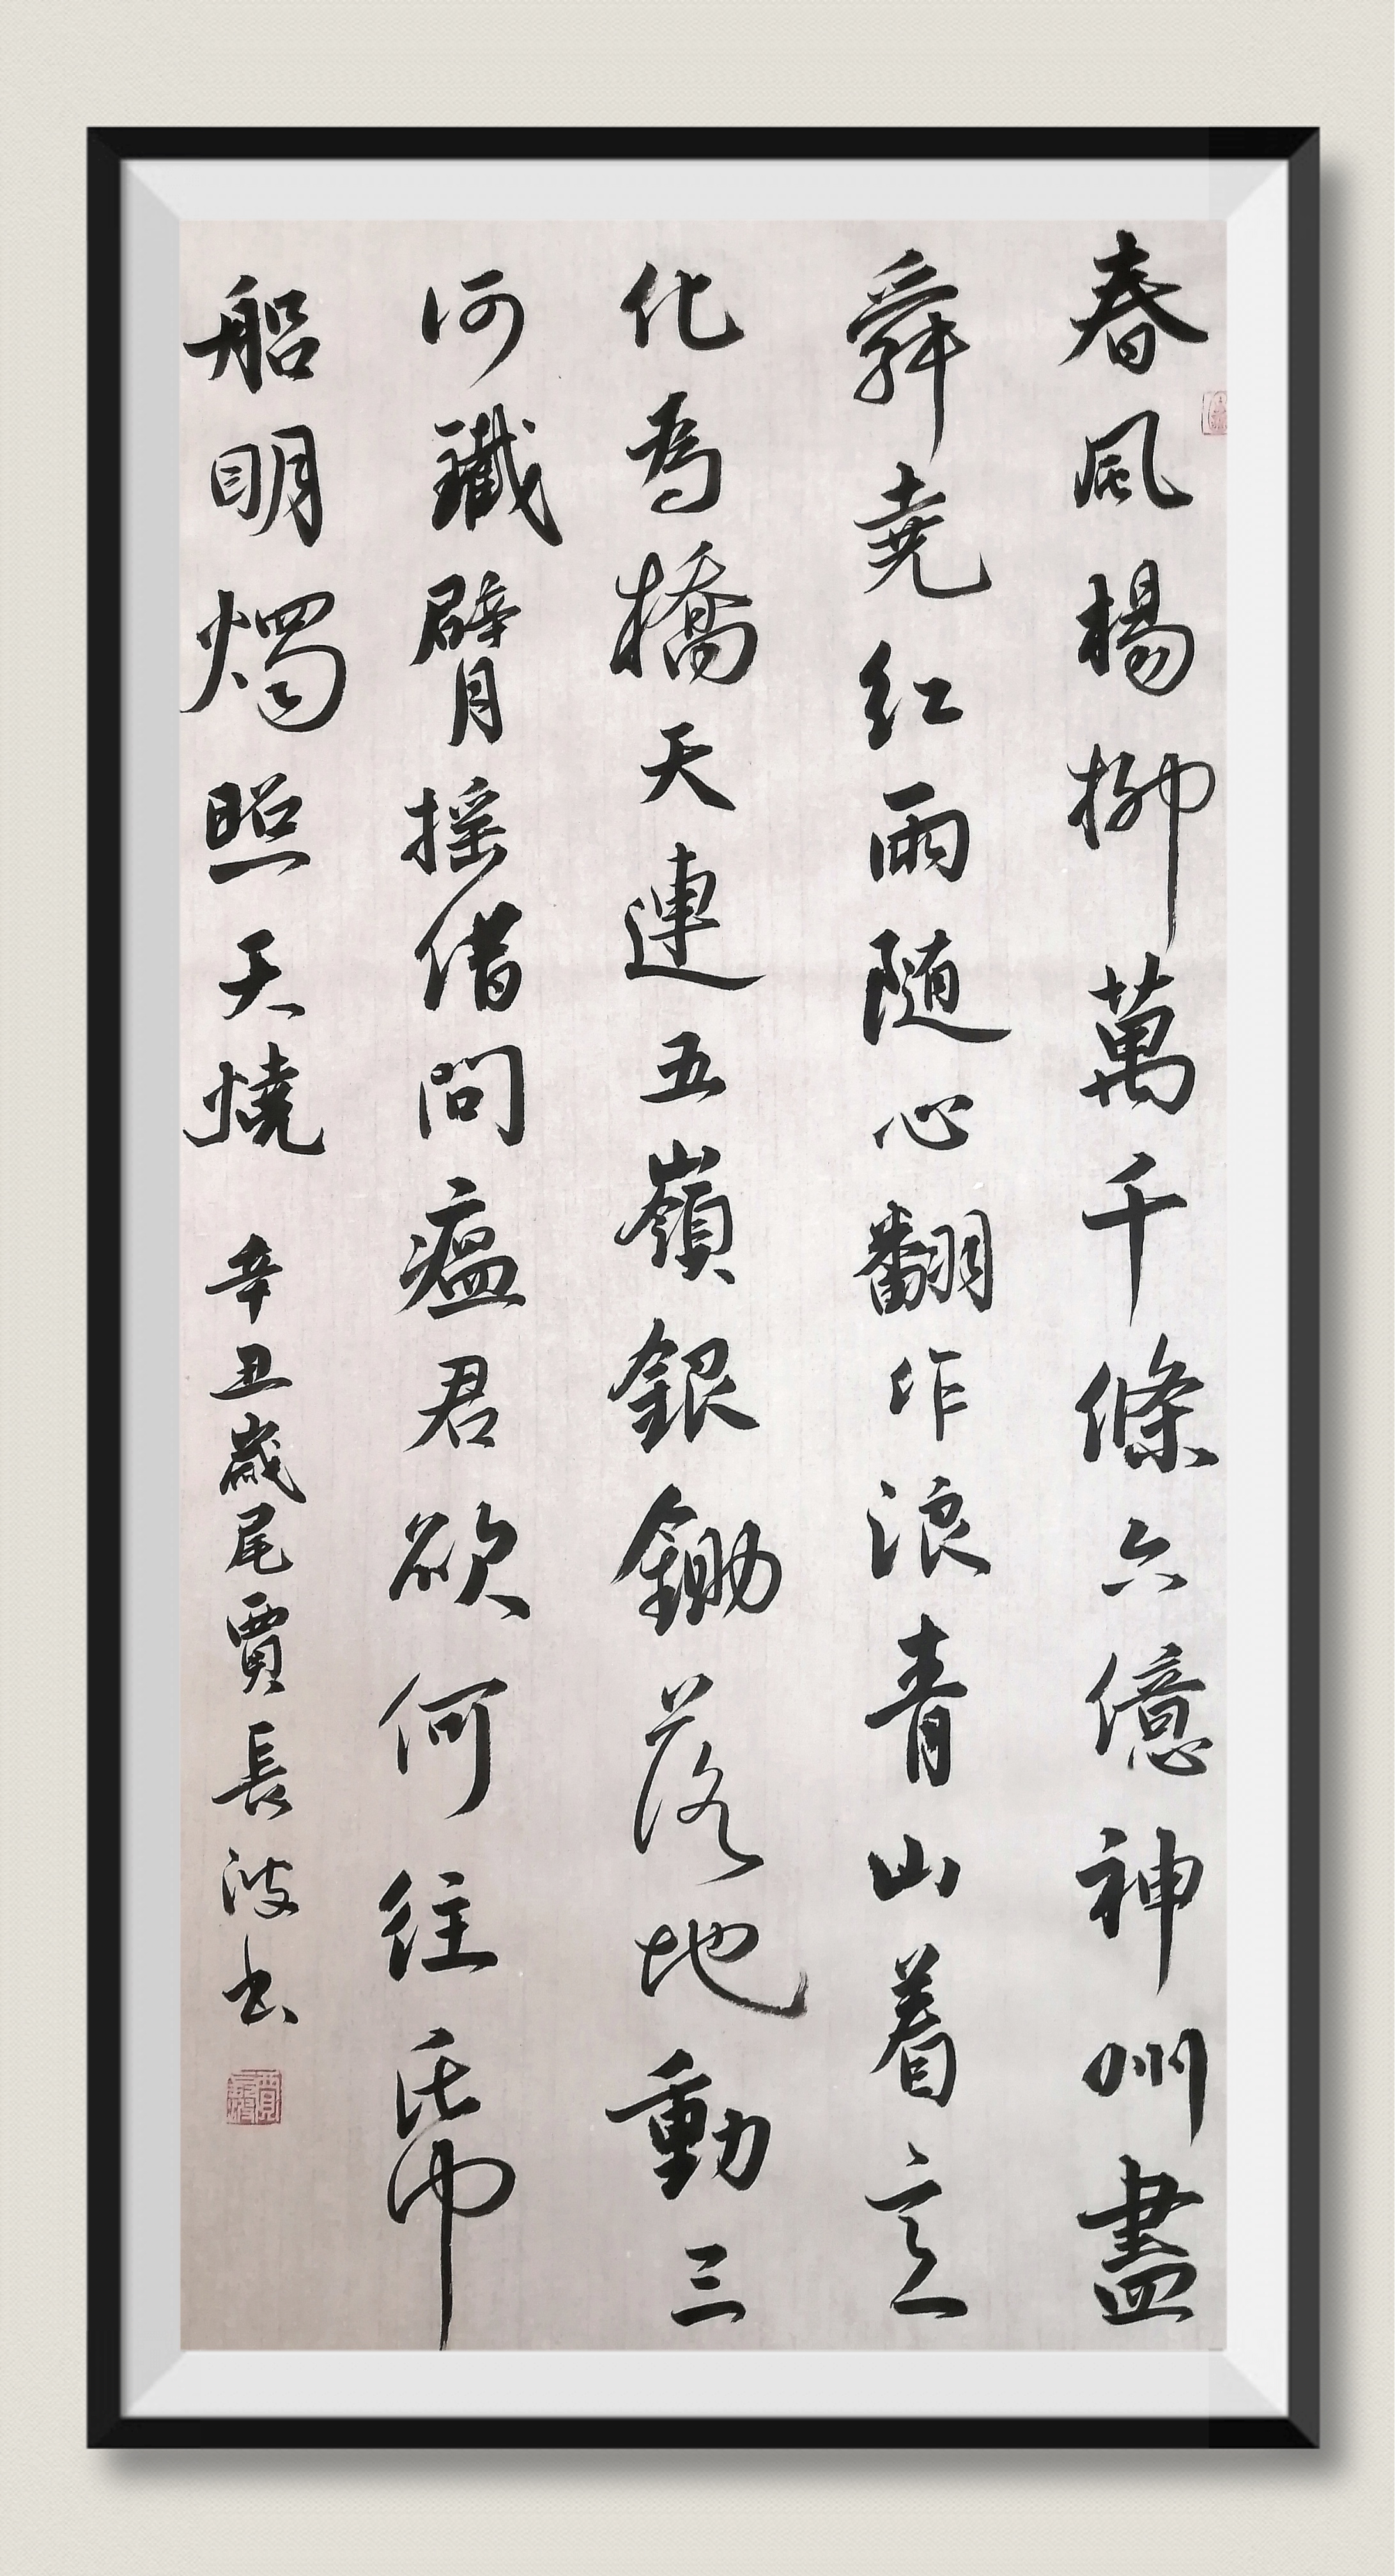 春風楊柳萬千條六億神州盡
舜堯紅雨随心翻作浪青山着意
化為橋天連五嶺銀鋤落地動三
河鐵臂摇借問瘟君欲何往帋
船明燭照天燒 辛丑歲尾賈長波书